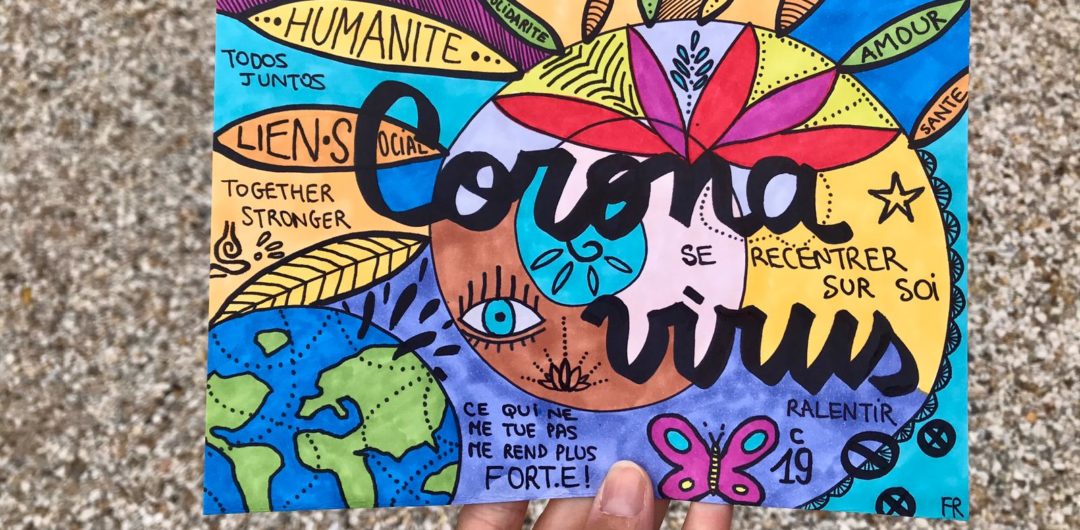 SOLIDARITE
HUMANITE
AMOUR
TODOS
JUNTOS
SANTE
LIEN•SOCIAL
Corona
TOGETHER
STRONGER
SE RECENTRER
SUR SOI
virus
CE QUI NE
ME TUE PAS
ME REND PLUS
FORT.E!
RALENTIR
C
19
FR